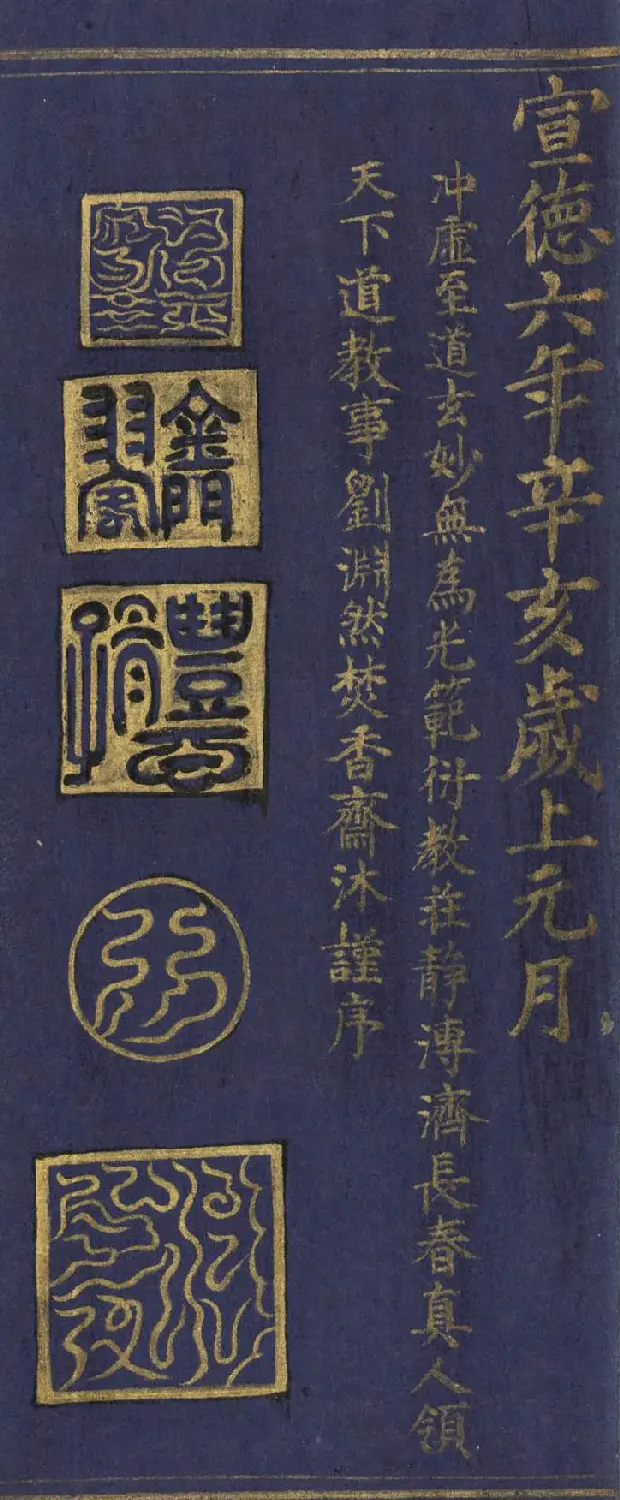 宣德六年辛亥歲上元月
冲虛至道玄妙無為光範衍教莊静溥濟長春真人領
天下道教事劉淵然焚香齋沐謹序
金門羽客